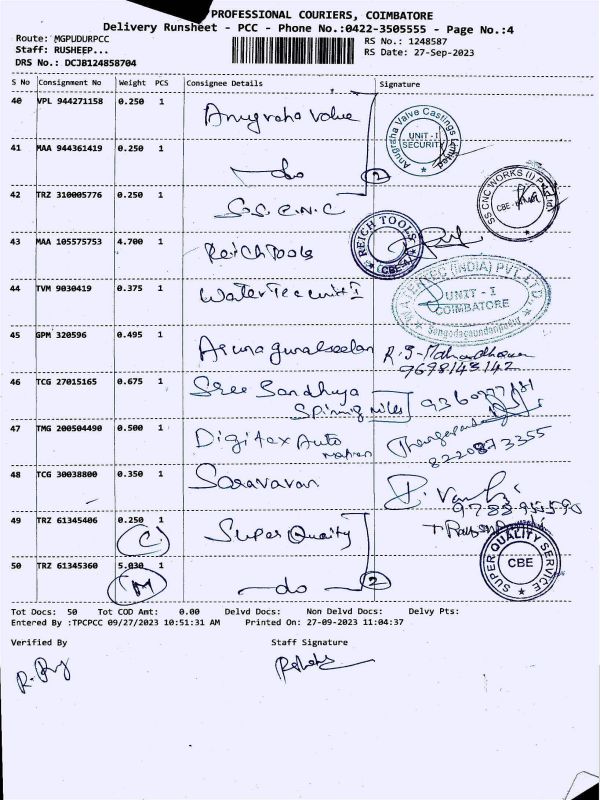 PROFESSIONAL COURIERS, COIMBATORE
Delivery Runsheet - PCC - Phone No.:0422-3505555 - Page No.:4
Route: MGPUDURPCC
RS No.: 1248587
Staff: RUSHEEP...
RS Date: 27-Sep-2023
DRS No.: DCJB124858704
S No Consignment No Weight PCS Consignee Details Signature
40 VPL 944271158 0.250 1 Anugraha Valve
Anugraha Valve Castings Limited
UNIT - I
SECURITY
41 MAA 944361419 0.250 1 do 2
42 TRZ 310005776 0.250 1 S.S. C.N.C
SS CNC WORKS (I) Pvt Ltd
CBE
43 MAA 105575753 4.700 1 Reich Tools
REICH TOOLS
(CBE-4)
44 TVM 9030419 0.375 1 Water Tec unit I
WATERTEC (INDIA) PVT LTD.
UNIT - I
COIMBATORE
45 GPM 320596 0.495 1
9698143142
46 TCG 27015165 0.675 1 Sree Sandhya
Spinnig Miles
47 TMG 200504490 0.500 1 Digitex Auto
8220873355
48 TCG 30038800 0.350 1 Saravanan
49 TRZ 61345406 0.250 1 Super Quality
C
SUPER QUALITY SERVICE
CBE
50 TRZ 61345360 5.030 1 do 2
M
Tot Docs: 50 Tot COD Amt: 0.00 Delvd Docs: Non Delvd Docs: Delvy Pts:
Entered By :TPCPCC 09/27/2023 10:51:31 AM Printed On: 27-09-2023 11:04:37
Verified By Staff Signature